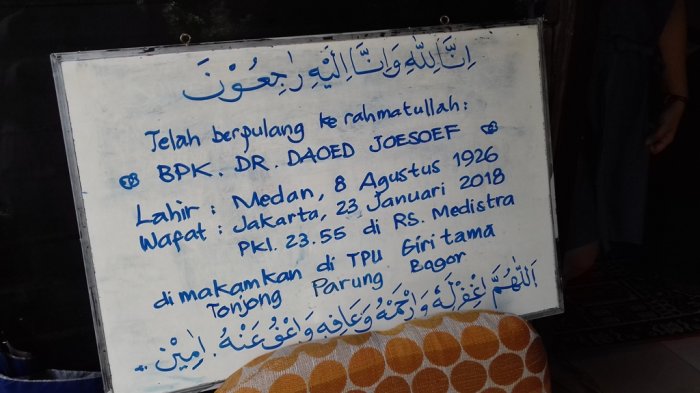 اِنَّا لِلّٰهِ وَاِنَّا اِلَيْهِ رَاجِعُوْنَ
Telah berpulang ke rahmatullah:
BPK. DR. DAOED JOESOEF
Lahir : Medan, 8 Agustus 1926
Wafat : Jakarta, 23 Januari 2018
Pkl. 23.55 di RS. Medistra
dimakamkan di TPU Giritama
Tonjong Parung Bogor
اَللّٰهُمَّ اغْفِرْلَهُ وَارْحَمْهُ وَعَافِهِ وَاعْفُ عَنْهُ. اٰمِيْن...